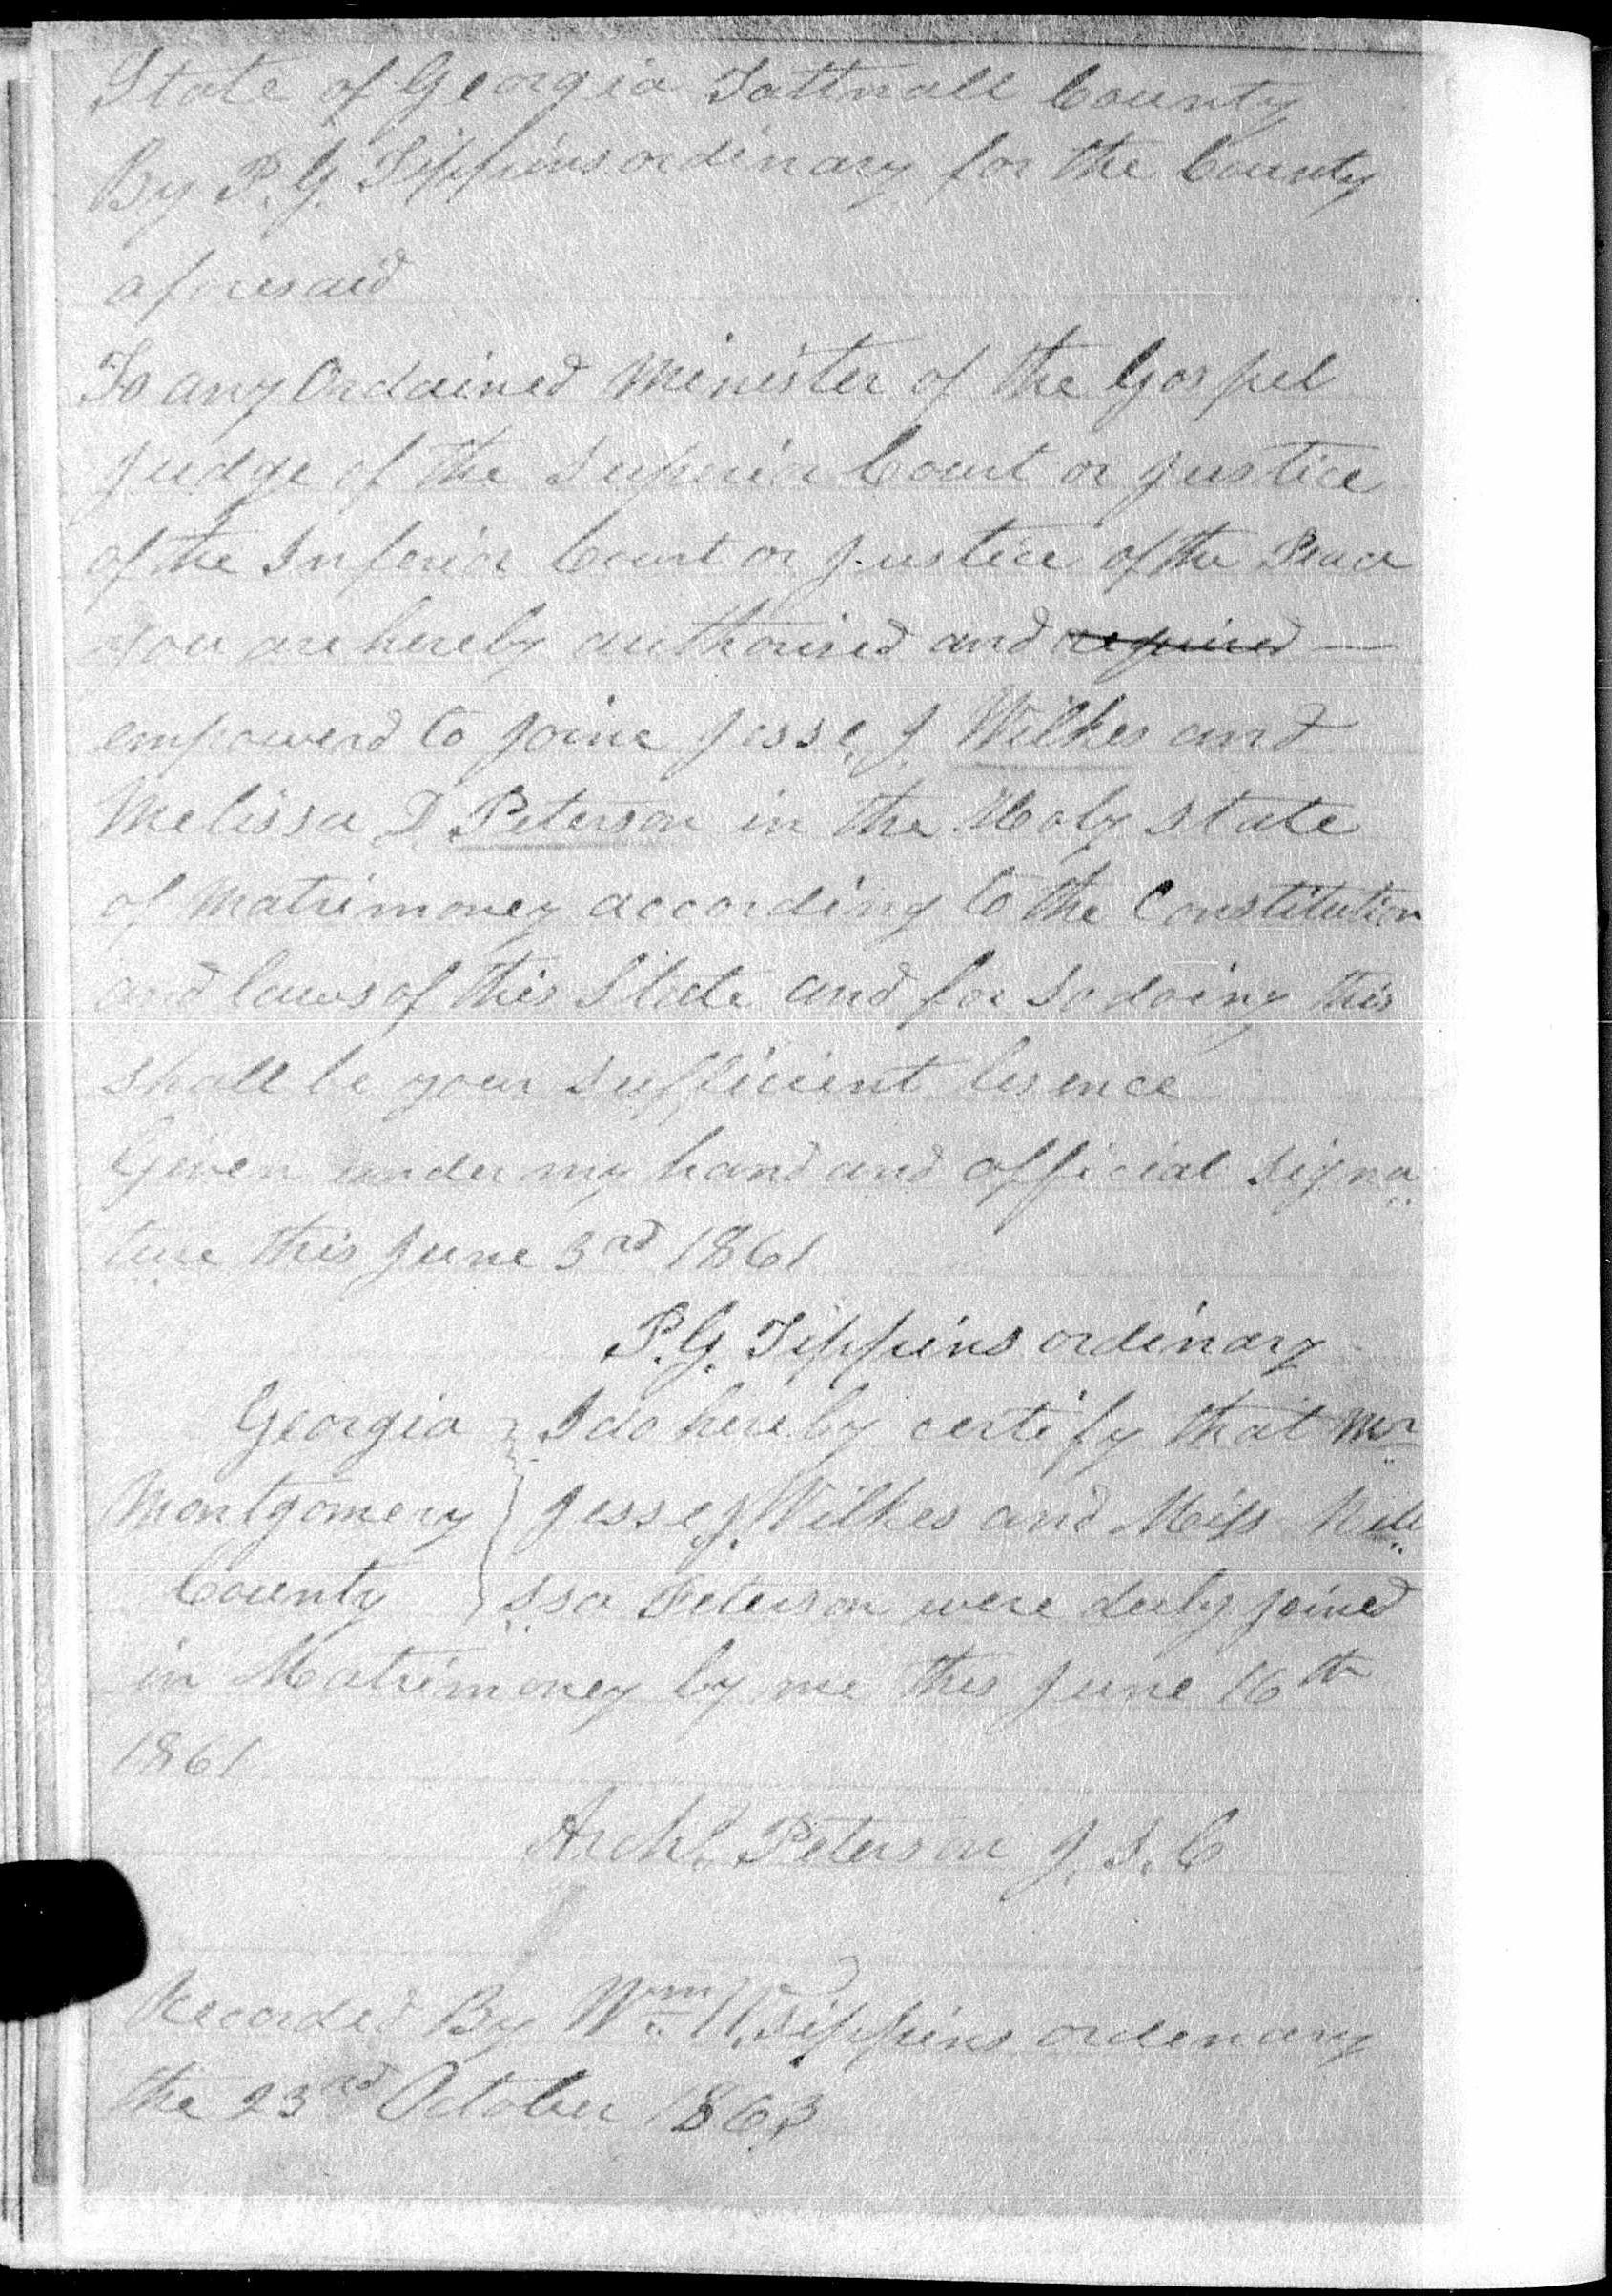 State of Georgia Tattnall County
By P. G. Tippins ordinary for the County
aforesaid
To any Ordained Minister of the Gospel
judge of the Superior Court or justice
of the Inferior Court or justice of the Peace
you are hereby authorised and required —
empowerd to joine Jesse J. Wilkes and
Melissa D. Peterson in the Holy State
of Matrimoney according to the Constitution
and laws of this State and for so doing this
shall be your sufficient lisence
Given under my hand and official signa
ture this June 3rd 1861
P. G. Tippins ordinary
Georgia } I do hereby certify that Mr
Montgomery } Jesse J. Wilkes and Miss Meli
County } ssa Peterson were duly joined
in Matrimoney by me this June 16th
1861
Archd. Peterson J. I. C
Recorded By Wm Tippins ordenary
the 23rd October 1863